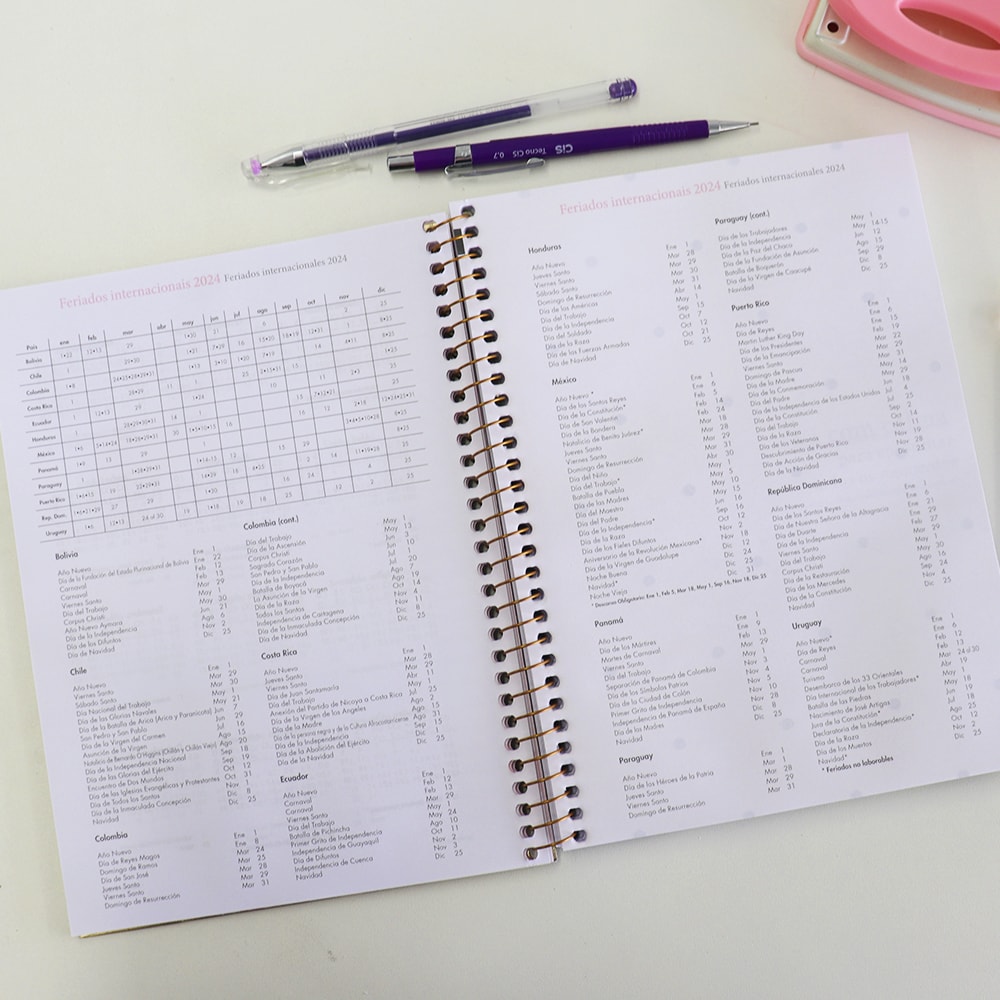 CiS Tecno CIS 0.7
Feriados internacionais 2024 Feriados internacionales 2024
País ene feb mar abr may jun jul ago sep oct nov dic
Bolivia
Chile
Colombia
Costa Rica
Ecuador
Honduras
México
Panamá
Paraguay
Puerto Rico
Rep. Dom.
Uruguay
Bolivia
Año Nuevo Ene 1
Día de la Fundación del Estado Plurinacional de Bolivia Ene 22
Carnaval Feb 12
Carnaval Feb 13
Viernes Santo Mar 29
Día del Trabajo May 1
Corpus Christi May 30
Año Nuevo Aymara Jun 21
Día de la Independencia Ago 6
Día de los Difuntos Nov 2
Día de Navidad Dic 25
Chile
Año Nuevo Ene 1
Viernes Santo Mar 29
Sábado Santo Mar 30
Día Nacional del Trabajo May 1
Día de las Glorias Navales May 21
Día de la Batalla de Arica (Arica y Parinacota) Jun 7
San Pedro y San Pablo Jun 29
Día de la Virgen del Carmen Jul 16
Asunción de la Virgen Ago 15
Natalicio de Bernardo O'Higgins (Chillán y Chillán Viejo) Ago 20
Día de la Independencia Nacional Sep 18
Día de las Glorias del Ejército Sep 19
Encuentro de Dos Mundos Oct 12
Día de las Iglesias Evangélicas y Protestantes Oct 31
Día de Todos los Santos Nov 1
Día de la Inmaculada Concepción Dic 8
Navidad Dic 25
Colombia
Año Nuevo Ene 1
Día de Reyes Magos Ene 8
Domingo de Ramos Mar 24
Día de San José Mar 25
Jueves Santo Mar 28
Viernes Santo Mar 29
Domingo de Resurrección Mar 31
Colombia (cont.)
Día del Trabajo May 1
Día de la Ascensión May 13
Corpus Christi Jun 3
Sagrado Corazón Jun 10
San Pedro y San Pablo Jul 1
Día de la Independencia Jul 20
Batalla de Boyacá Ago 7
La Asunción de la Virgen Ago 19
Día de la Raza Oct 14
Todos los Santos Nov 4
Independencia de Cartagena Nov 11
Día de la Inmaculada Concepción Dic 8
Día de Navidad Dic 25
Costa Rica
Año Nuevo Ene 1
Jueves Santo Mar 28
Viernes Santo Mar 29
Día de Juan Santamaría Abr 11
Día del Trabajo May 1
Anexión del Partido de Nicoya a Costa Rica Jul 25
Día de la Virgen de los Ángeles Ago 2
Día de la Madre Ago 15
Día de la persona negra y de la Cultura Afrocostarricense Ago 31
Día de la Independencia Sep 15
Día de la Abolición del Ejército Dic 1
Día de la Navidad Dic 25
Ecuador
Año Nuevo Ene 1
Carnaval Feb 12
Carnaval Feb 13
Viernes Santo Mar 29
Día del Trabajo May 1
Batalla de Pichincha May 24
Primer Grito de Independencia Ago 10
Independencia de Guayaquil Oct 11
Día de Difuntos Nov 2
Independencia de Cuenca Nov 3
Navidad Dic 25
Feriados internacionais 2024 Feriados internacionales 2024
Honduras
Año Nuevo Ene 1
Jueves Santo Mar 28
Viernes Santo Mar 29
Sábado Santo Mar 30
Domingo de Resurrección Mar 31
Día de las Américas Abr 14
Día del Trabajo May 1
Día de la Independencia Sep 15
Día del Soldado Oct 7
Día de la Raza Oct 12
Día de las Fuerzas Armadas Oct 21
Día de Navidad Dic 25
México
Año Nuevo * Ene 1
Día de los Santos Reyes Ene 6
Día de la Constitución* Feb 5
Día de San Valentín Feb 14
Día de la Bandera Feb 24
Natalicio de Benito Juárez* Mar 18
Jueves Santo Mar 28
Viernes Santo Mar 29
Domingo de Resurrección Mar 31
Día del Niño Abr 30
Día del Trabajo* May 1
Batalla de Puebla May 5
Día de las Madres May 10
Día del Maestro May 15
Día del Padre Jun 16
Día de la Independencia* Sep 16
Día de la Raza Oct 12
Día de los Fieles Difuntos Nov 2
Aniversario de la Revolución Mexicana* Nov 18
Día de la Virgen de Guadalupe Dic 12
Noche Buena Dic 24
Navidad* Dic 25
Noche Vieja Dic 31
* Descanso Obligatorio: Ene 1, Feb 5, Mar 18, May 1, Sep 16, Nov 18, Dic 25
Panamá
Año Nuevo Ene 1
Día de los Mártires Ene 9
Martes de Carnaval Feb 13
Viernes Santo Mar 29
Día del Trabajo May 1
Separación de Panamá de Colombia Nov 3
Día de los Símbolos Patrios Nov 4
Día de la Ciudad de Colón Nov 5
Primer Grito de Independencia Nov 10
Independencia de Panamá de España Nov 28
Día de la Madre Dic 8
Navidad Dic 25
Paraguay
Año Nuevo Ene 1
Día de los Héroes de la Patria Mar 1
Jueves Santo Mar 28
Viernes Santo Mar 29
Domingo de Resurrección Mar 31
Paraguay (cont.)
Día de los Trabajadores May 1
Día de la Independencia May 14-15
Día de la Paz del Chaco Jun 12
Día de la Fundación de Asunción Ago 15
Batalla de Boquerón Sep 29
Día de la Virgen de Caacupé Dic 8
Navidad Dic 25
Puerto Rico
Año Nuevo Ene 1
Día de Reyes Ene 6
Martin Luther King Day Ene 15
Día de los Presidentes Feb 19
Día de la Emancipación Mar 22
Viernes Santo Mar 29
Domingo de Pascua Mar 31
Día de la Madre
Día de la Conmemoración
Día del Padre
Día de la Independencia de los Estados Unidos
Día de la Constitución Jul 25
Día del Trabajo Sep 2
Día de la Raza Oct 14
Día de los Veteranos Nov 11
Descubrimiento de Puerto Rico Nov 19
Día de Acción de Gracias Nov 28
Día de la Navidad Dic 25
República Dominicana
Año Nuevo Ene 1
Día de los Santos Reyes Ene 6
Día de Nuestra Señora de la Altagracia Ene 21
Día de Duarte Ene 29
Día de la Independencia Feb 27
Viernes Santo Mar 29
Día del Trabajo
Corpus Christi May 30
Día de la Restauración Ago 16
Día de las Mercedes Sep 24
Día de la Constitución Nov
Navidad Dic 25
Uruguay
Año Nuevo* Ene 1
Día de Reyes Ene 6
Carnaval Feb 12
Carnaval Feb 13
Turismo Mar 24 al 30
Desembarco de los 33 Orientales Abr 19
Día Internacional de los Trabajadores* May 1
Batalla de las Piedras May 18
Nacimiento de José Artigas Jun 19
Jura de la Constitución* Jul 18
Declaratoria de la Independencia* Ago 25
Día de la Raza Oct 12
Día de los Muertos Nov 2
Navidad* Dic 25
* Feriados no laborables